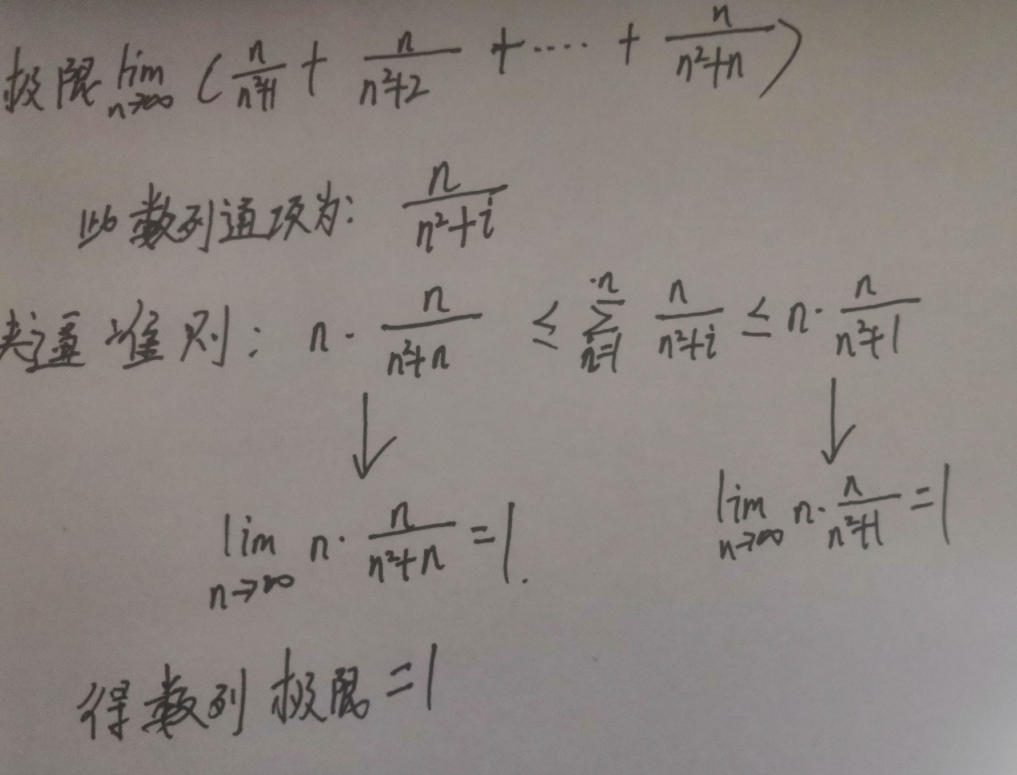 极限 lim n→∞ ( n/(n²+1) + n/(n²+2) + ···· + n/(n²+n) )
此数列通项为: n/(n²+i)
夹逼准则: n · n/(n²+n) ≤ ∑ n n=1 n/(n²+i) ≤ n · n/(n²+1)
↓ ↓
lim n→∞ n · n/(n²+n) = 1. lim n→∞ n · n/(n²+1) = 1
得数列极限 = 1